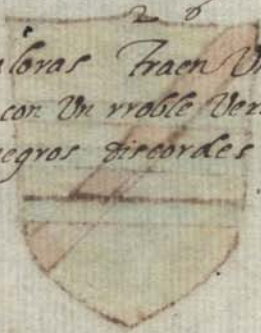 26
loras Traen Un
con Un rroble Ver
negros discordes